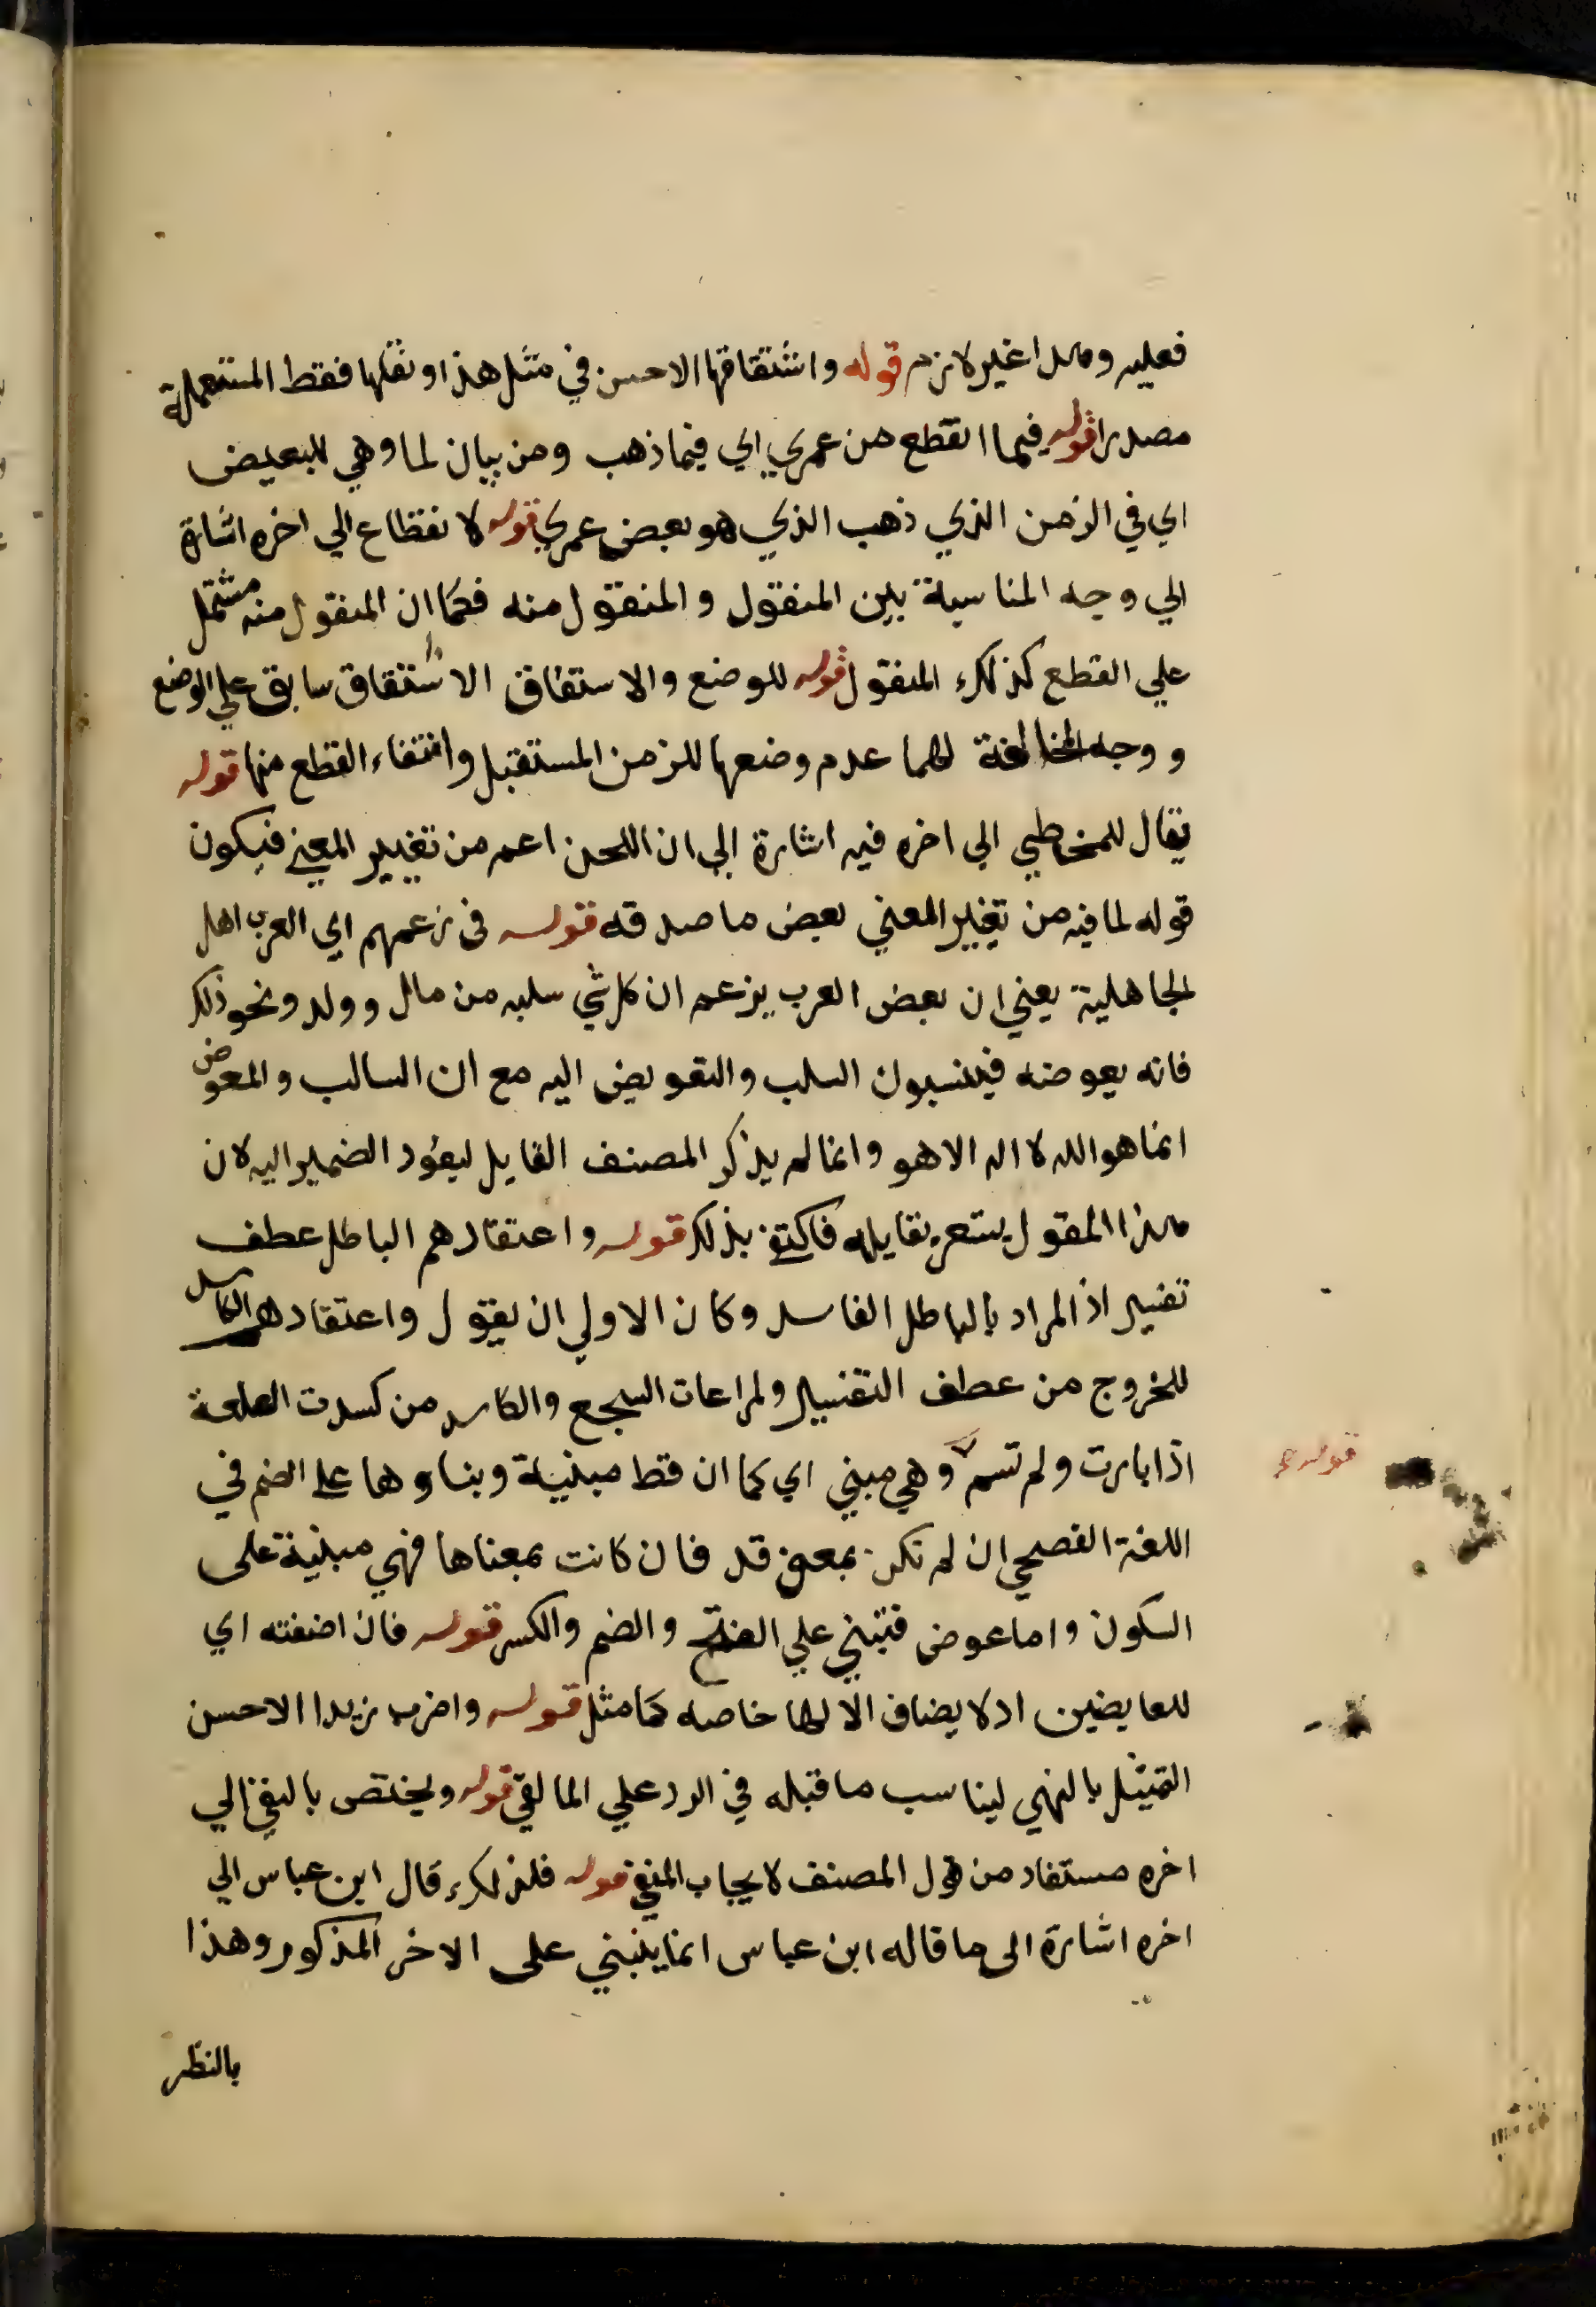 فعليه وهذا غير لازم قوله واشتقاقها الاحسن في مثل هذا ونقلها فقط المستعملة
مصدرا قوله فيما انقطع من عمري اي فيما ذهب ومن بيان لما وهي للبعيض
اي في الزمن الذي ذهب الذي هو بعض عمري قوله لانقطاع الي اخره اشارة
الي وجه المناسبة بين المنقول والمنقول منه فكما ان المنقول منه مشتمل
علي القطع كذلك المنقول قوله للوضع والاستقاق الاشتقاق سابق علي الوضع
ووجه المخالفة لهما عدم وضعها للزمن المستقبل وانتفاء القطع منها قوله
يقال للمخطي الي اخره فيه اشارة الي ان اللحن اعم من تغيير المعني فيكون
قوله لما فيه من تغيير المعني بعض ما صدقه قوله في زعمهم اي العرب اهل
الجاهلية يعني ان بعض العرب يزعم ان كل شي سلبه من مال وولد ونحو ذلك
فانه يعوضه فينسبون السلب والتعويض اليه مع ان السالب والمعوض
انما هو الله لا اله الا هو وانما لم يذكر المصنف القايل ليعود الضمير اليه لان
هذا المقول يشعر بقايله فاكتفي بذلك قوله واعتقادهم الباطل عطف
تفسير اذ المراد بالباطل الفاسد وكان الاولي ان يقول واعتقادهم الكاسد
للخروج من عطف التفسير ولمراعات السجع والكاسد من كسدت السلعة
اذا بارت ولم تسم وهي مبني اي كما ان قط مبنية وبناوها على الضم في
قوله
اللغة الفصحي ان لم تكن بمعني قد فان كانت بمعناها فهي مبنية على
السكون واما عوض فتبني علي الفتح والضم والكسر قوله فان اضفته اي
للعايضين اذ لا يضاف الا لها خاصه كما مثل قوله واضرب زيدا الاحسن
التمثيل بالنهي ليناسب ما قبله في الرد علي المالقي قوله ويختص بالنفي الي
اخره مستفاد من قول المصنف لايجاب المنفي قوله فلذلك قال ابن عباس الي
اخره اشارة الى ما قاله ابن عباس انما ينبني على الاخر المذكور وهذا
بالنظر